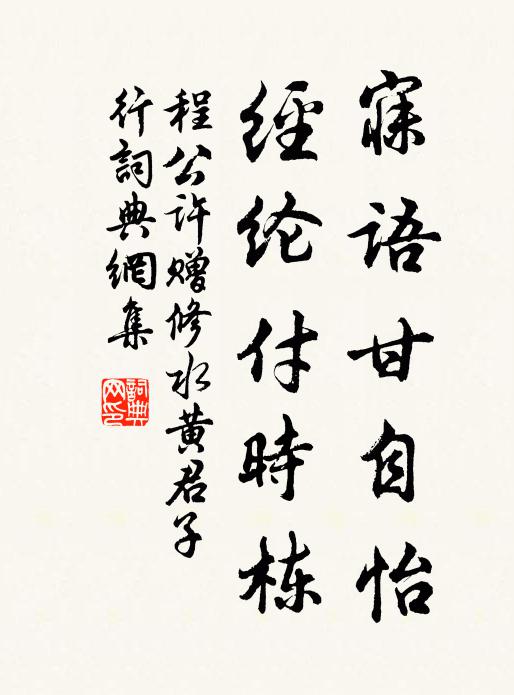 寐語甘自怡
經纶付時栋
程公许赠修水黄君子
行詞典網集
詞典网印